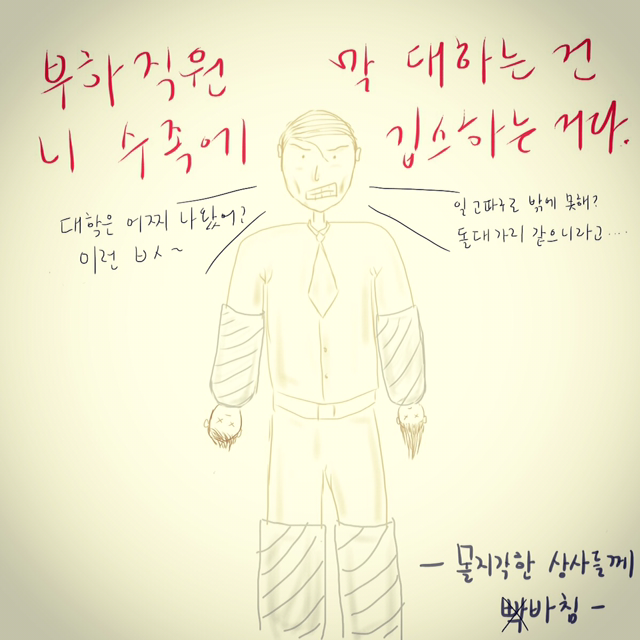 부하직원 막 대하는 건
니 수족에 깁스하는 거다.
대학은 어찌 나왔어?
이런 ㅂㅅ~
일 고따구로 밖에 못해?
돌대가리 같으니라고....
- 몰지각한 상사들께
바침 -